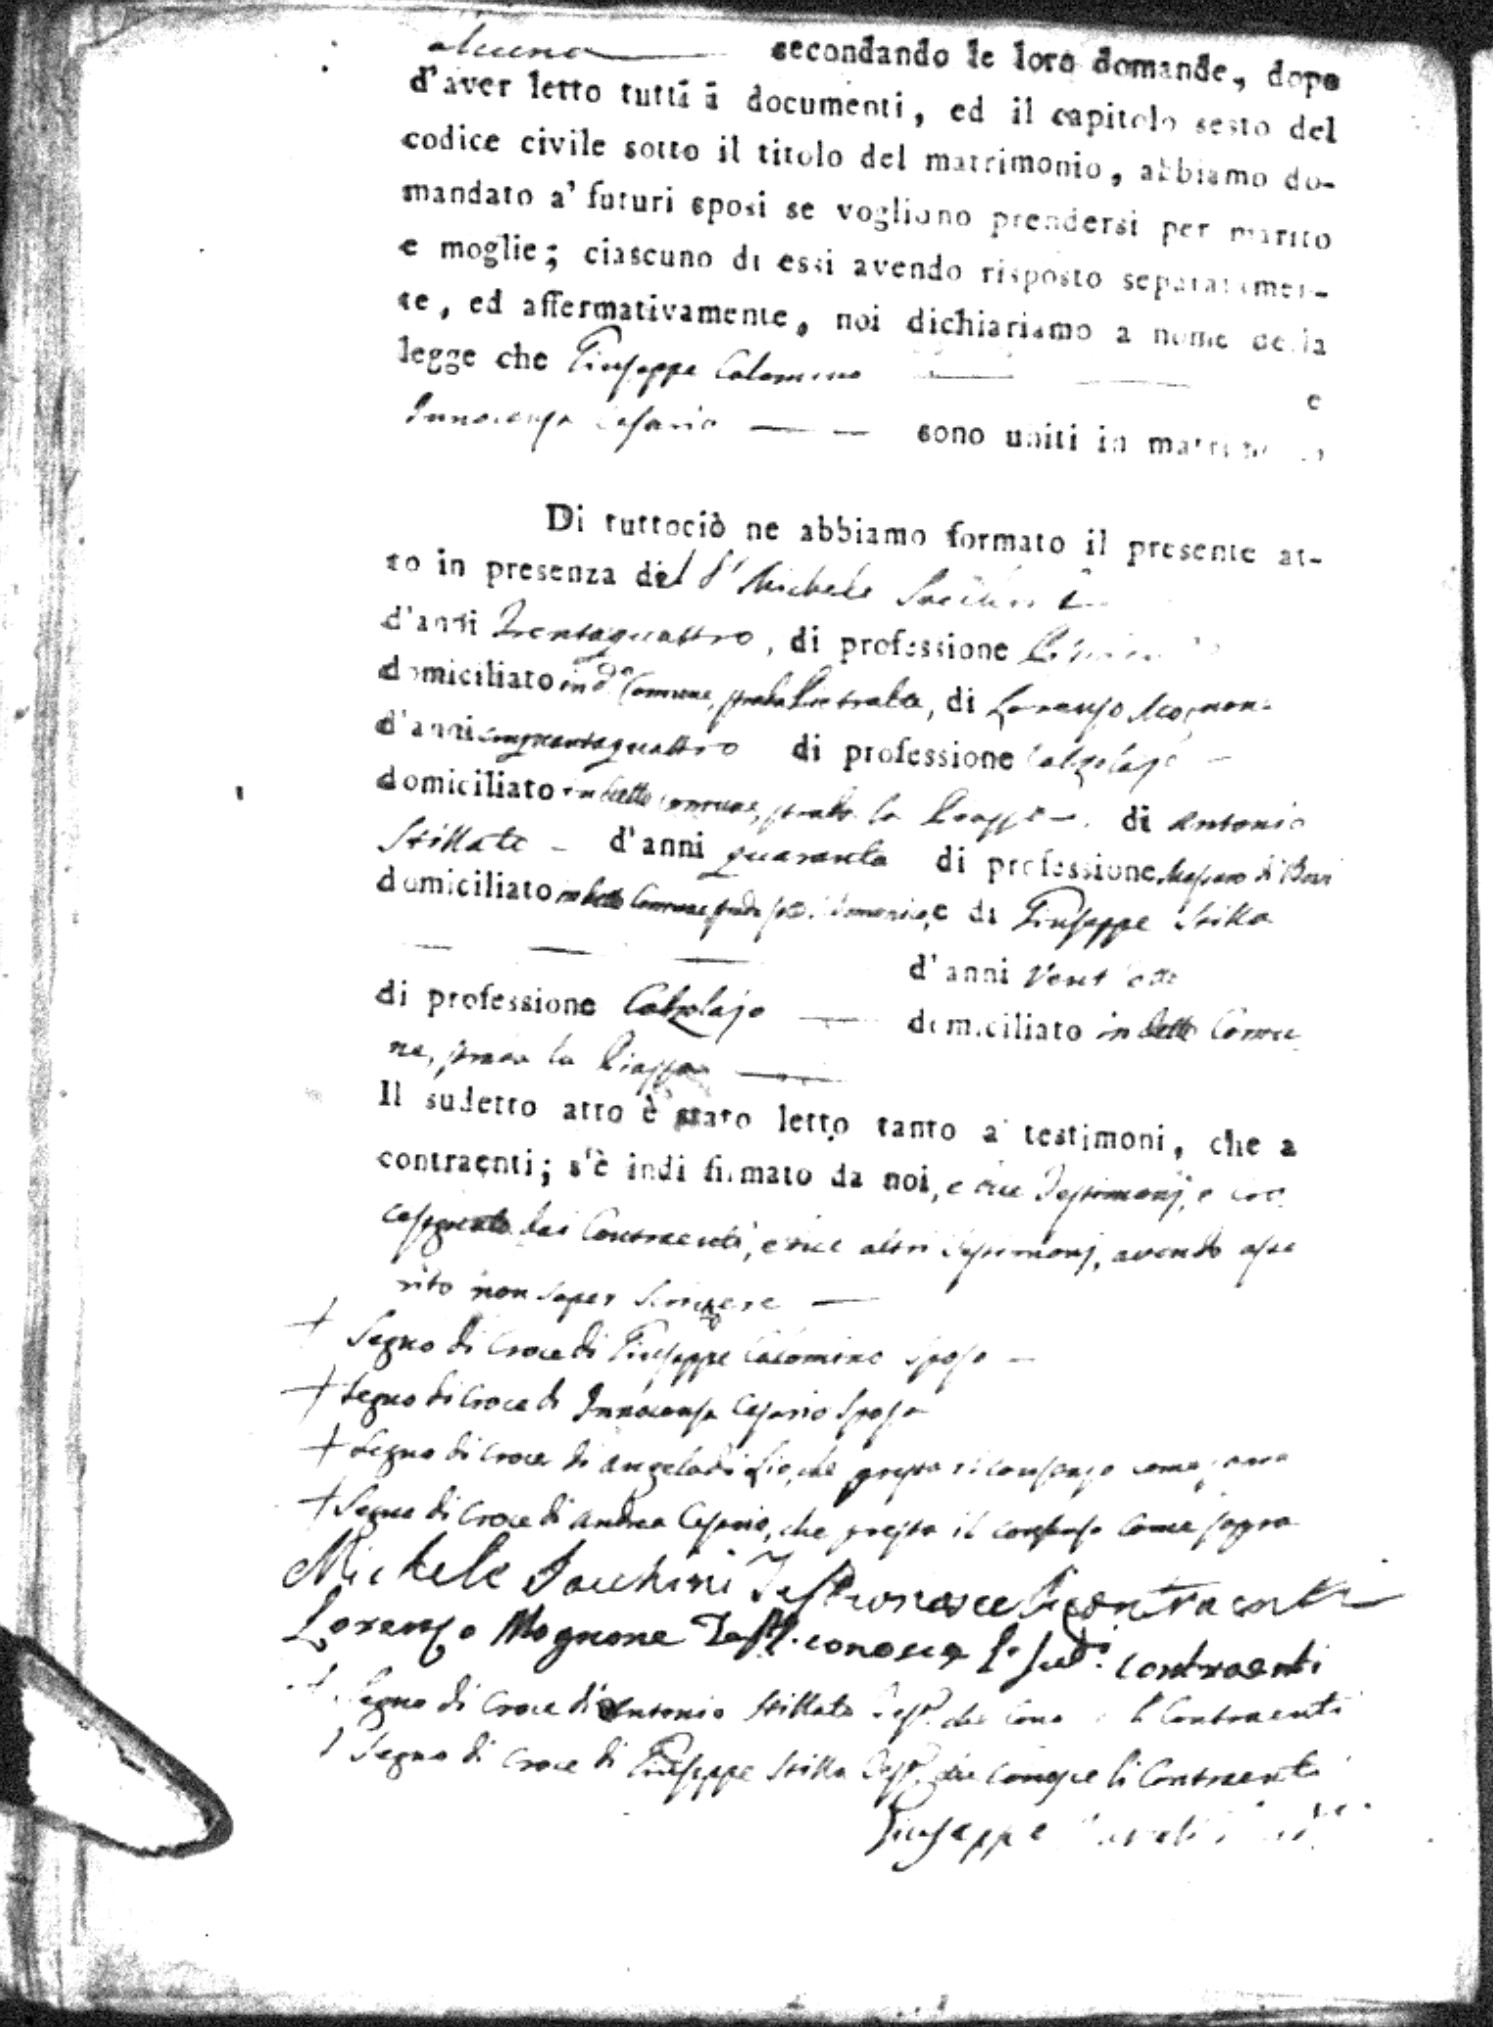 alcuna secondando le loro domande, dopo
d'aver letto tutti i documenti, ed il capitolo sesto del
codice civile sotto il titolo del matrimonio, abbiamo do-
mandato a' futuri sposi se vogliono prendersi per marito
e moglie; ciascuno di essi avendo risposto separatamen-
te, ed affermativamente, noi dichiariamo a nome della
legge che Giuseppe Calomino e
Innocenza Cesario sono uniti in matrimonio
Di tuttociò ne abbiamo formato il presente at-
to in presenza del Sr Michele
d'anni Trentaquattro, di professione
domiciliato in da Comune, strada Pietrales, di Lorenzo Mognone
d'anni cinquantaquattro di professione Calzolajo
domiciliato in detto comune, strada la Piazza di Antonio
Stillate d'anni quaranta di professione Massaro di Bovi
domiciliato in detto Comune strada e di Giuseppe Stilla
d'anni Vent'otto
di professione Calzolajo domiciliato in detto Comu
ne, strada la Piazza
Il sudetto atto è stato letto tanto a' testimoni, che a
contraenti; s'è indi firmato da noi, e due Testimonj, e cro
cesegnato dai Contraenti, e due altri Testimonj, avendo asse
rito non saper scrivere
+ Segno di Croce di Giuseppe Calomino Sposo
+ Segno di Croce di Innocenza Cesario Sposa
+ Segno di Croce di Angela di Lio, che presta il consenso come sopra
+ Segno di Croce di Andrea Cesario, che presta il consenso come sopra
Michele Sacchini Test conosce li contraenti
Lorenzo Mognone Test. conosce li sudi contraenti
+ Segno di Croce di Antonio Stillate Test. che conosce li Contraenti
+ Segno di Croce di Giuseppe Stilla Test. che conosce li Contraenti
Giuseppe